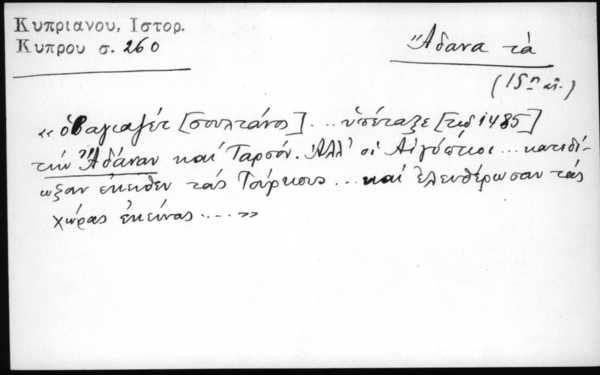 Κυπριανου, Ιστορ.
Κυπρου σ. 260
Ἄδανα τὰ
(15ος αἰ.)
« ὁ Βαγιαζὲτ [σουλτάνος] ... ὑπέταξε [τῷ 1485]
τὴν Ἄδάναν καὶ Ταρσόν. Ἀλλ' οἱ Αἰγύπτιοι ... κατεδί-
ωξαν ἐκεῖθεν τοὺς Τούρκους ... καὶ ἐλευθέρωσαν τὰς
χώρας ἐκείνας .... »